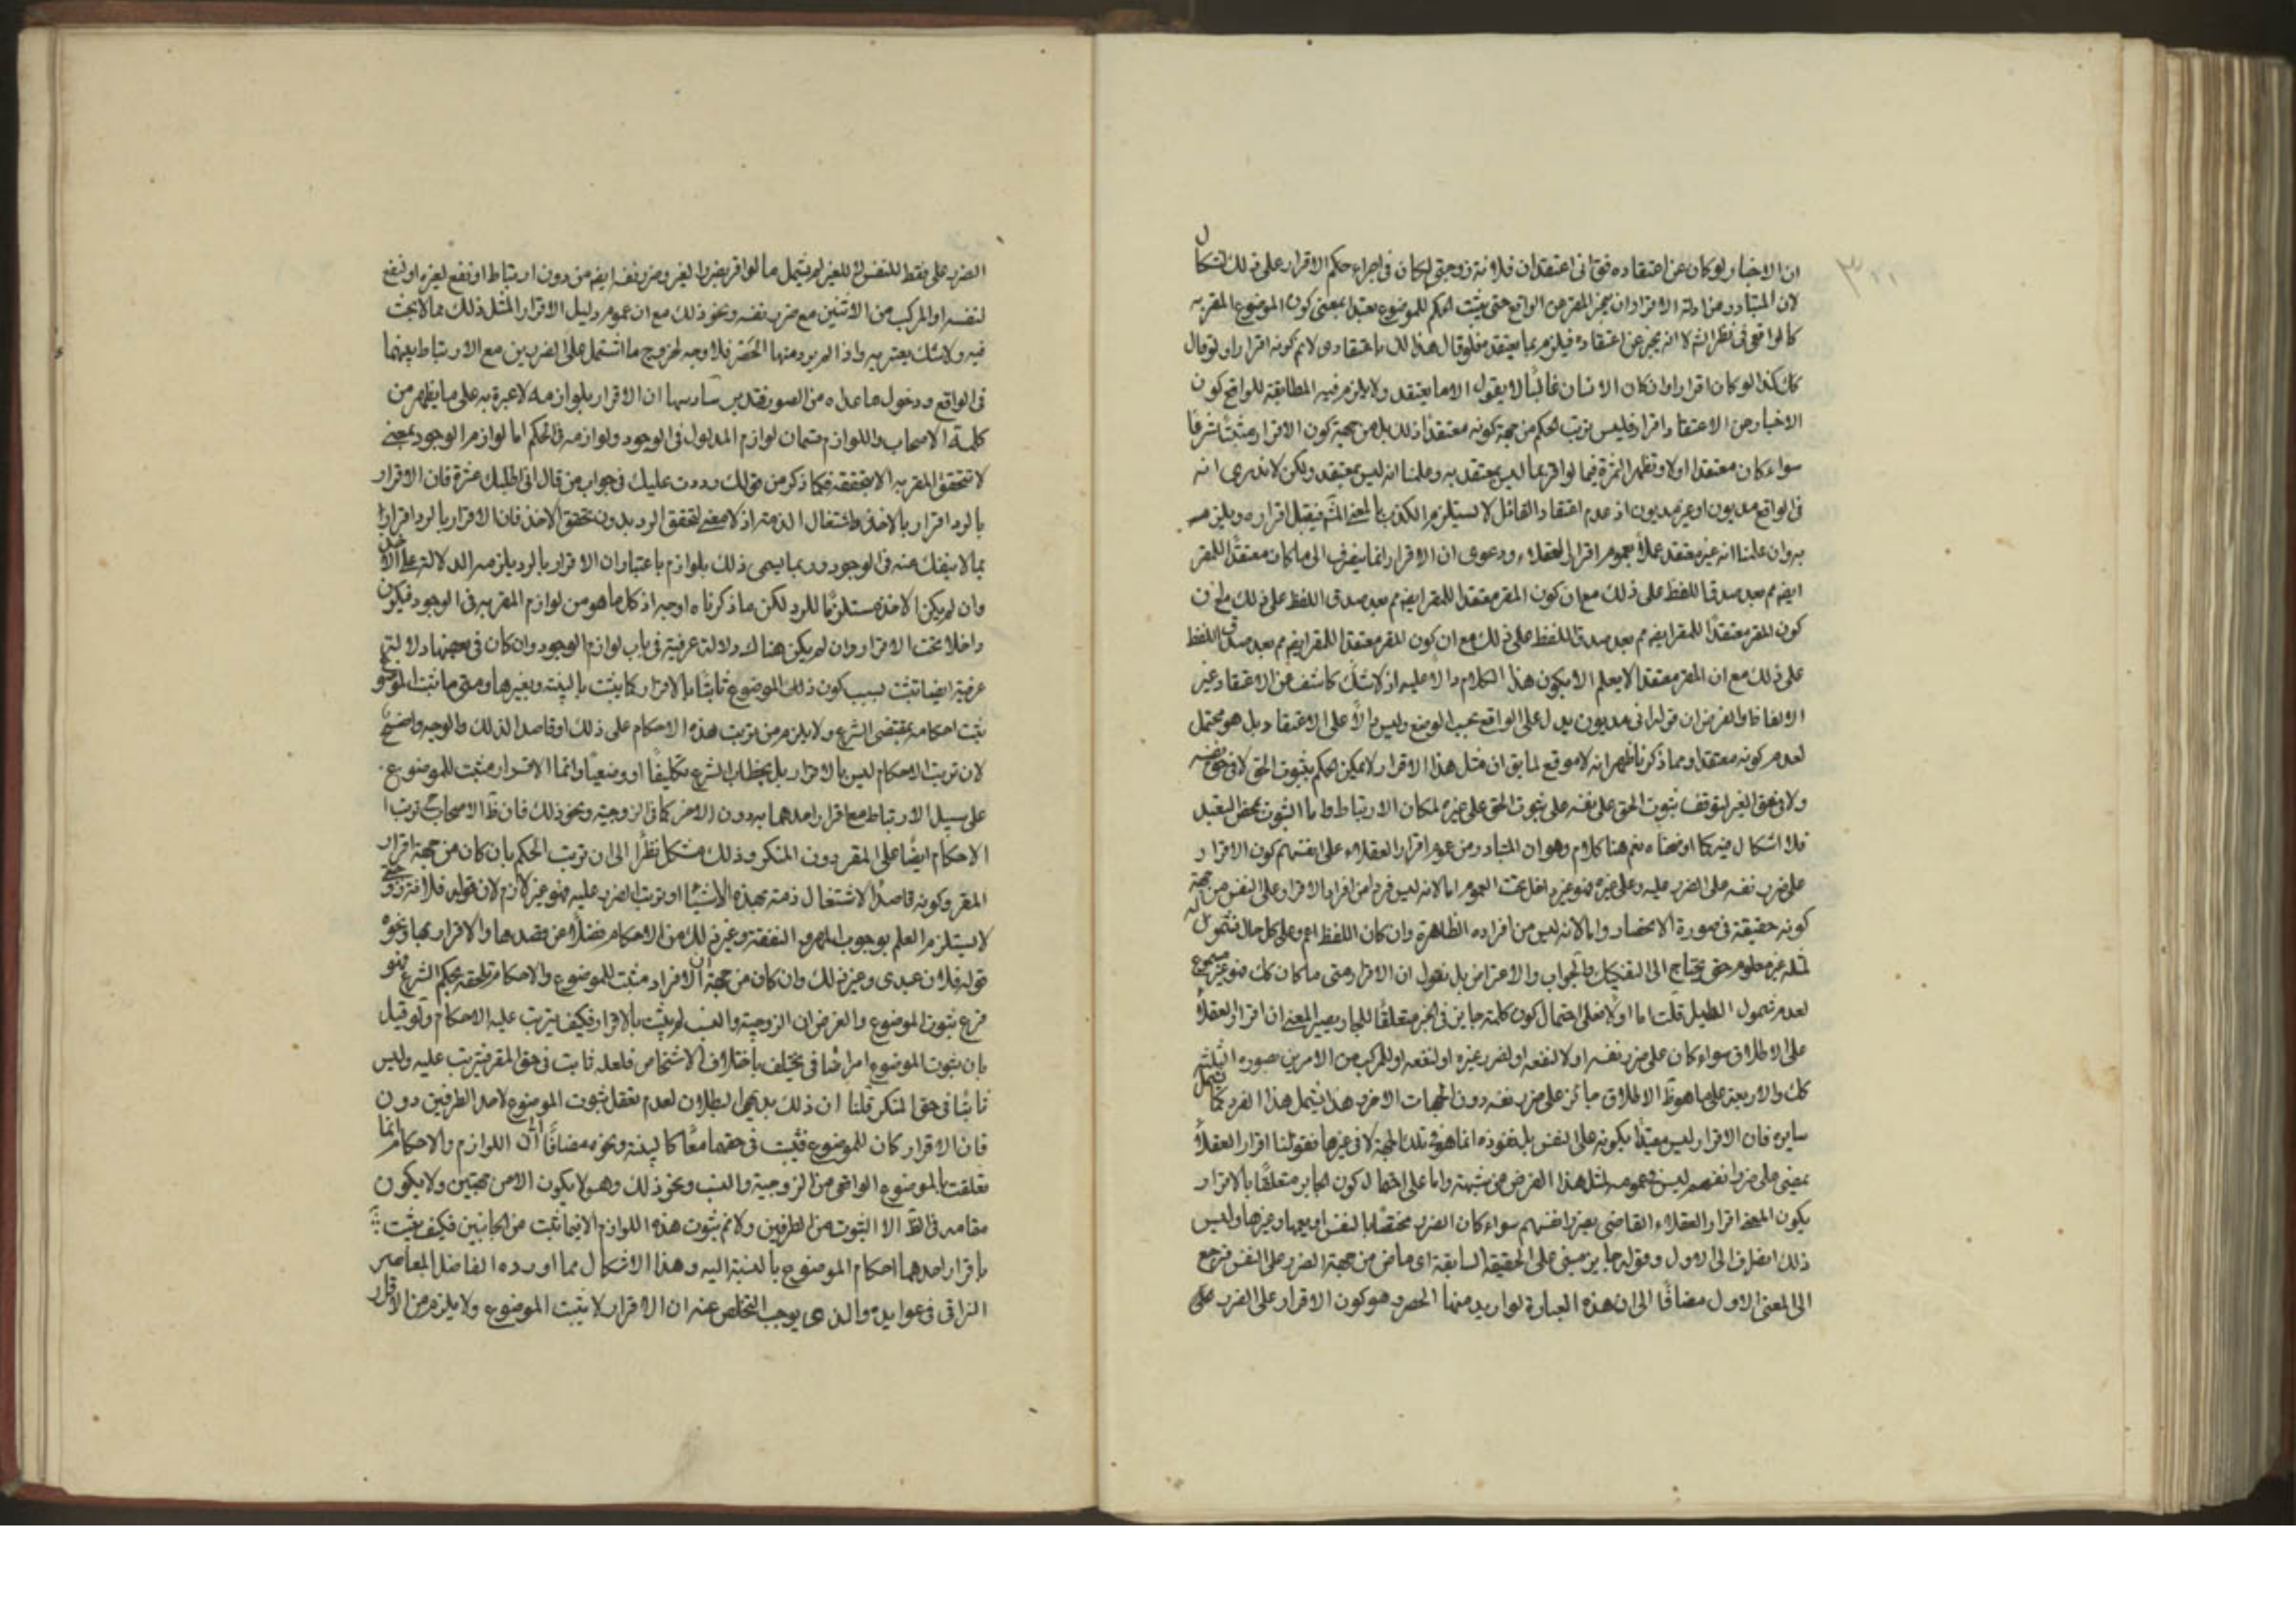 ان الاخبار لو كان عن اعتقاده فقال انى اعتقد ان فلانة زوجتى لكان فى اجراء حكم الاقرار على ذلك اشكال
لان المتبادر من ادلة الاقرار ان يخبر المقر عن الواقع حتى يثبت الحكم للموضوع تعبدا بمعنى كون الموضوع المقر به
كالواقع فى نظر الشـ لا انه يخبر عن اعتقاده فيلزم بما يعتقد فلو قال هذا لك باعتقادى لا نم كونه اقرارا ولو قال
كان كذا لو كان اقرارا وان كان الانسان غالبًا لا يقول الا ما يعتقد ولا يلزم فيه المطابقة للواقع كون
الاخبار عن الاعتقاد اقرار فليس ترتب الحكم من جهة كونه معتقدا ذلك بل من جهة كون الاقرار مثبتا شرعا
سواء كان معتقدا اولا وتظهر الثمرة فيما لو اقر بما ليس يعتقد به وعلمنا انه ليس بمعتقد ولكن لا ندرى انه
فى الواقع مديون او غير مديون اذ عدم اعتقاد القائل لا يستلزم الكذب بالمعنى فيقبل اقراره ويلزم
به وان علمنا انه غير معتقد عملا بعموم اقرار العقلاء ودعوى ان الاقرار انما ينصرف الى ما كان معتقدًا للمقر
ايضا مم بعد صدق اللفظ على ذلك مع ان كون المقر معتقدا للمقر ايضا مم بعد صدق اللفظ على ذلك مع ان
كون المقر معتقدًا للمقر ايضا مم بعد صدق اللفظ على ذلك مع ان كون المقر معتقدا للمقر ايضا مم بعد صدق اللفظ
على ذلك مع ان المقر معتقدا لا يعلم الا بكون هذا الكلام دالا عليه اذ لا شك كاشف عن الاعتقاد غير
الالفاظ والفرض ان قوله انى مديون يدل على الواقع بحسب الوضع وليس دالًا على الاعتقاد بل هو محتمل
لعدم كونه معتقدا ومما ذكرنا ظهر انه لا موقع لما بق ان مثل هذا الاقرار لا يمكن الحكم بثبوت الحق لا فى حق نفسه
ولا فى حق الغير لتوقف ثبوت الحق على نفسه على ثبوت الحق على غيره لمكان الارتباط واما الثبوت بمحض التعبد
فلا اشكال فيه كما اوضحناه نعم هنا كلام وهو ان المتبادر من عموم اقرار العقلاء على انفسهم كون الاقرار
على ضرر نفسه على الضرر عليه وعلى غيره فهو غير داخل تحت العموم اما لانه ليس فردا من افراد الاقرار على النفس من جهة
كونه حقيقة فى صورة الانحصار واما لانه ليس من افراده الظاهرة وان كان اللفظ اعم وعلى كل حال فشموله
لمثله غير معلوم حتى يحتاج الى التفكيك والجواب والاعتراض بل نقول ان الاقرار متى ما كان كك فهو غير مسموع
لعدم شمول الدليل قلت اما اولا فعلى احتمال كون كلمة جايز فى الخبر متعلقًا للجار يصير المعنى ان اقرار العقلاء
على الاطلاق سواء كان على ضرر نفسه اولا لنفعه او لضرر غيره او لنفعه او للمركب من الامرين صوره الثلثة
كك والاربعة على ما هو ظ الاطلاق جائز على ضرر نفسه دون الجهات الاخر وهذا يشمل هذا الفرد كما يشمل
سايره فان الاقرار ليس مقيدًا بكونه على النفس بل نفوذه انما هو فى تلك الجهة لا فى غيرها فقولنا اقرار العقلاء
بمعنى على ضرر انفسهم ليس فى عمومه لمثل هذا الفرض محل شبهة واما على احتمال كون الجابر متعلقًا بالاقرار
يكون المعنى اقرار العقلاء القاضى بضرر انفسهم سواء كان الضرر مختصًا بالنفس او يعمها وغيرها وليس
ذلك انصراف الى الاول وقوله جايز مبنى على الحقيقة السابقة اى ماض من جهة الضرر على النفس فرجع
الى المعنى الاول مضافًا الى ان هذه العبارة لو اريد منها الحصر وهو كون الاقرار على الضرر على
الضرر على فقط للنفس لا للغير لم يشمل ما لو اقر بضرر الغير وضرر نفسه ايضا من دون ارتباط او نفع لغيره او نفع
لنفسه او المركب من الاثنين مع ضرر نفسه ونحو ذلك مع ان عموم دليل الاقرار لمثل ذلك مما لا بحث
فيه ولا شك يعتريه واذا لم يرد منها الحَصْر فلا وجه لخروج ما اشتمل على الضررين مع الارتباط بينهما
فى الواقع ودخول ما عداه من الصور فتدبر سادسها ان الاقرار بلوازمه لا عبرة به على ما يظهر من
كلمة الاصحاب واللوازم قسمان لوازم المدلول فى الوجود ولوازمه فى الحكم اما لوازم الوجود بمعنى
لا تتحقق المقر به الا بتحققه فكما ذكر من قولك رددت عليك فى جواب من قال انى اطلبك عشرة فان الاقرار
بالرد اقرار بالاخذ واشتغال الذمة اذ لا معنى لتحقق الرد بدون تحقق الاخذ فان الاقرار بالرد اقرار
بما لا ينفك عنه فى الوجود وربما يسمى ذلك بلوازم باعتبار ان الاقرار بالرد يلزمه الدلالة على الاخذ
وان لم يكن الاخذ مستلزمًا للرد لكن ما ذكرناه اوجه اذ كل ما هو من لوازم المقر به فى الوجود فيكون
داخلا تحت الاقرار وان لم يكن هناك دلالة عرفية فى باب لوازم الوجود وان كان فى بعضها دلالة
عرفية ايضا تثبت بسبب كون ذلك الموضوع ثابتًا بالاقرار كما يثبت بالبينة وبغيرها ومتى ما ثبت الموضوع
يثبت احكامه بمقتضى الشرع ولا يلزم من ترتب هذه الاحكام على ذلك او قاصدا لذلك والوجه واضح
لان ترتب الاحكام ليس بالاقرار بل بخطاب الشرع تكليفًا او وضعيًا وانما الاقرار مثبت للموضوع
على سبيل الارتباط مع اقرار احدهما به دون الاخر كما فى الزوجية ونحو ذلك فان ظ الاصحاب ترتب
الاحكام ايضًا على المقر دون المنكر وذلك مشكل نظرًا الى ان ترتب الحكم بان كان من جهة اقرار
المقر وكونه قاصدًا لاشتغال ذمته بهذه الاشياء او ترتب الضرر عليه فهو غير لازم لان قوله فلانة زوجتى
لا يستلزم العلم بوجوب المهر والنفقة وغير ذلك من الاحكام فضلًا عن قصدها والاقرار بها ونحوه
قوله فلان عبدى وغير ذلك وان كان من جهة ان الاقرار مثبت للموضوع والاحكام تلحقه بحكم الشرع فهو
فرع ثبوت الموضوع والفرض ان الزوجية والنسب لم يثبت بالاقرار فكيف يترتب عليه الاحكام ولو قيل
بان ثبوت الموضوع امر اضافى يختلف باختلاف الاشخاص فلعله ثابت فى حق المقر فيترتب عليه وليس
ثابتًا فى حق المنكر قلنا ان ذلك بديهى البطلان لعدم تعقل ثبوت الموضوع لاحد الطرفين دون
فان الاقرار كان للموضوع فثبت فى حقهما معًا كالبينة ونحوه مضافًا الى ان اللوازم والاحكام انما
تعلقت بالموضوع الواقعى من الزوجية والنسب ونحو ذلك وهو لا يكون الا من جهتين ولا يكون
مقامه فى الظ الا الثبوت من الطرفين ولا نم ثبوت هذه اللوازم الا فيما ثبت من الجانبين فكيف يثبت
باقرار احدهما احكام الموضوع بالنسبة اليه وهذا الاشكال مما اورده الفاضل المعاصر
النراقى فى عوايده والذى يوجب التخلص عنه ان الاقرار لا يثبت الموضوع ولا يلزم من الاقرار